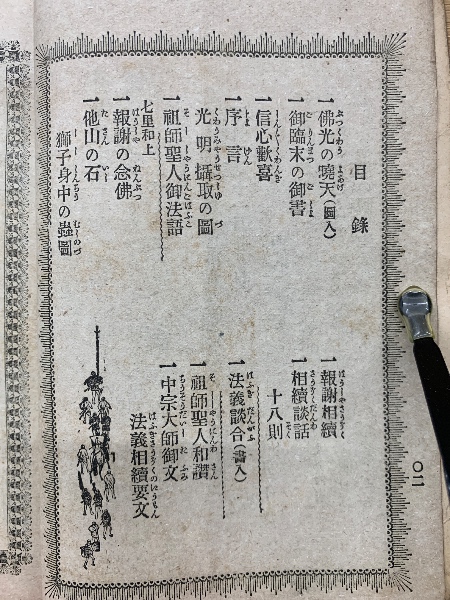 目錄
一佛光の曉天(圖入)
一御臨末の御書
一信心歡喜
一序言
光明攝取の圖
一祖師聖人御法語
七里和上
一報謝の念佛
一他山の石
獅子身中の蟲圖
一報謝相續
一相續談話
十八則
一法義談合(畵入)
一祖師聖人和讚
一中宗大師御文
法義相續要文
〇二